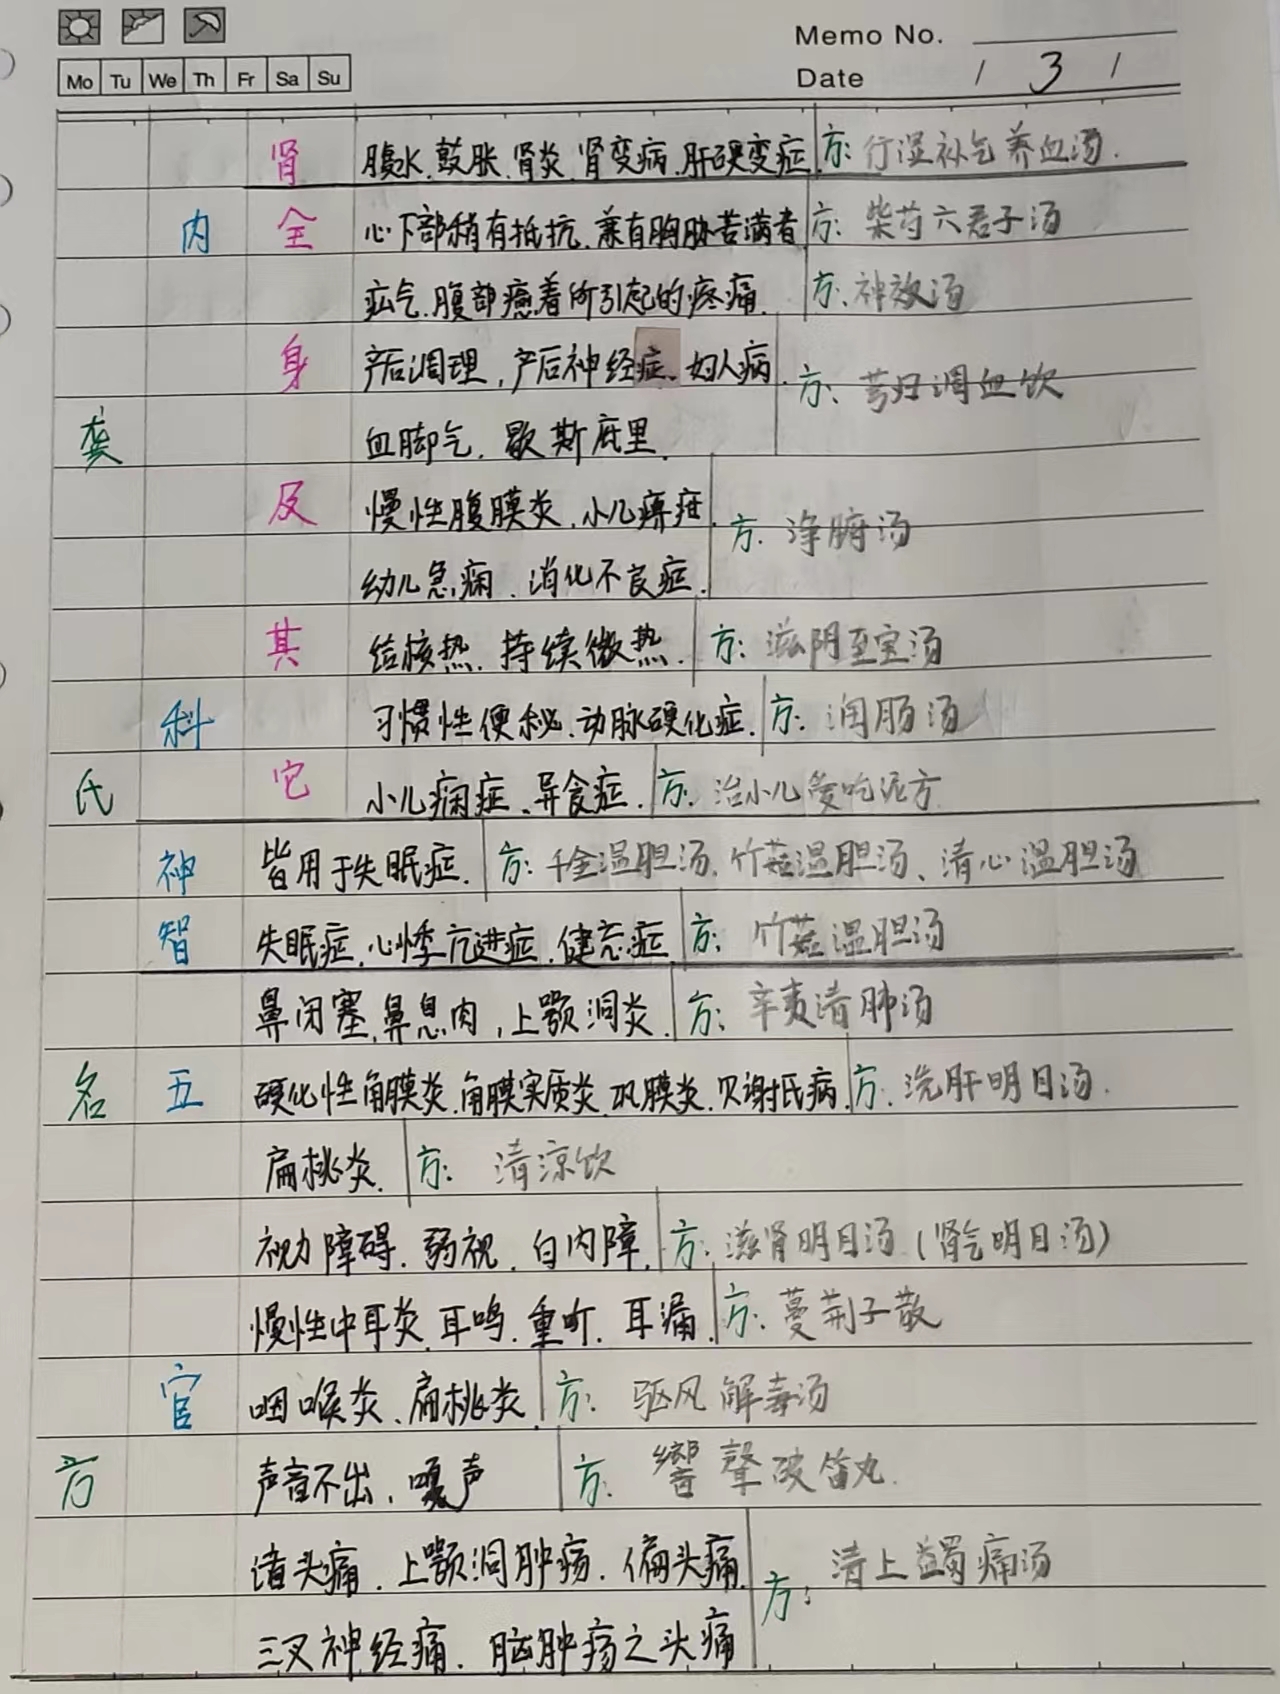 Memo No.
Mo Tu We Th Fr Sa Su
Date / 3 /
肾 腹水.鼓胀.肾炎.肾变病.肝硬变症 方:行湿补气养血汤.
内 全 心下部稍有抵抗.兼有胸胁苦满者 方:柴芍六君子汤
疝气.腹部癒着所引起的疼痛. 方.神效汤
身 产后调理,产后神经症.妇人病. 方:芎归调血饮
龚 血脚气.歇斯底里.
及 慢性腹膜炎.小儿痹疳. 方.净腑汤
幼儿急痫.消化不良症.
其 结核热.持续微热. 方:滋阴至宝汤
科 习惯性便秘.动脉硬化症. 方:润肠汤
氏 它 小儿痫症、异食症. 方.治小儿爱吃泥方
神 皆用于失眠症. 方:千金温胆汤.竹茹温胆汤、清心温胆汤
智 失眠症.心悸亢进症.健忘症 方:竹茹温胆汤
鼻闭塞.鼻息肉,上颚洞炎. 方:辛夷清肺汤
名 五 硬化性角膜炎.角膜实质炎.巩膜炎.贝谢氏病. 方:洗肝明目汤.
扁桃炎. 方: 清凉饮
视力障碍.弱视.白内障. 方:滋肾明目汤(肾气明目汤)
慢性中耳炎.耳鸣.重听.耳漏. 方:蔓荆子散
官 咽喉炎、扁桃炎 方: 驱风解毒汤
方 声音不出.嗄声 方:響聲破笛丸.
诸头痛.上颚洞肿疡.偏头痛. 方:清上蠲痛汤
三叉神经痛.脑肿疡之头痛